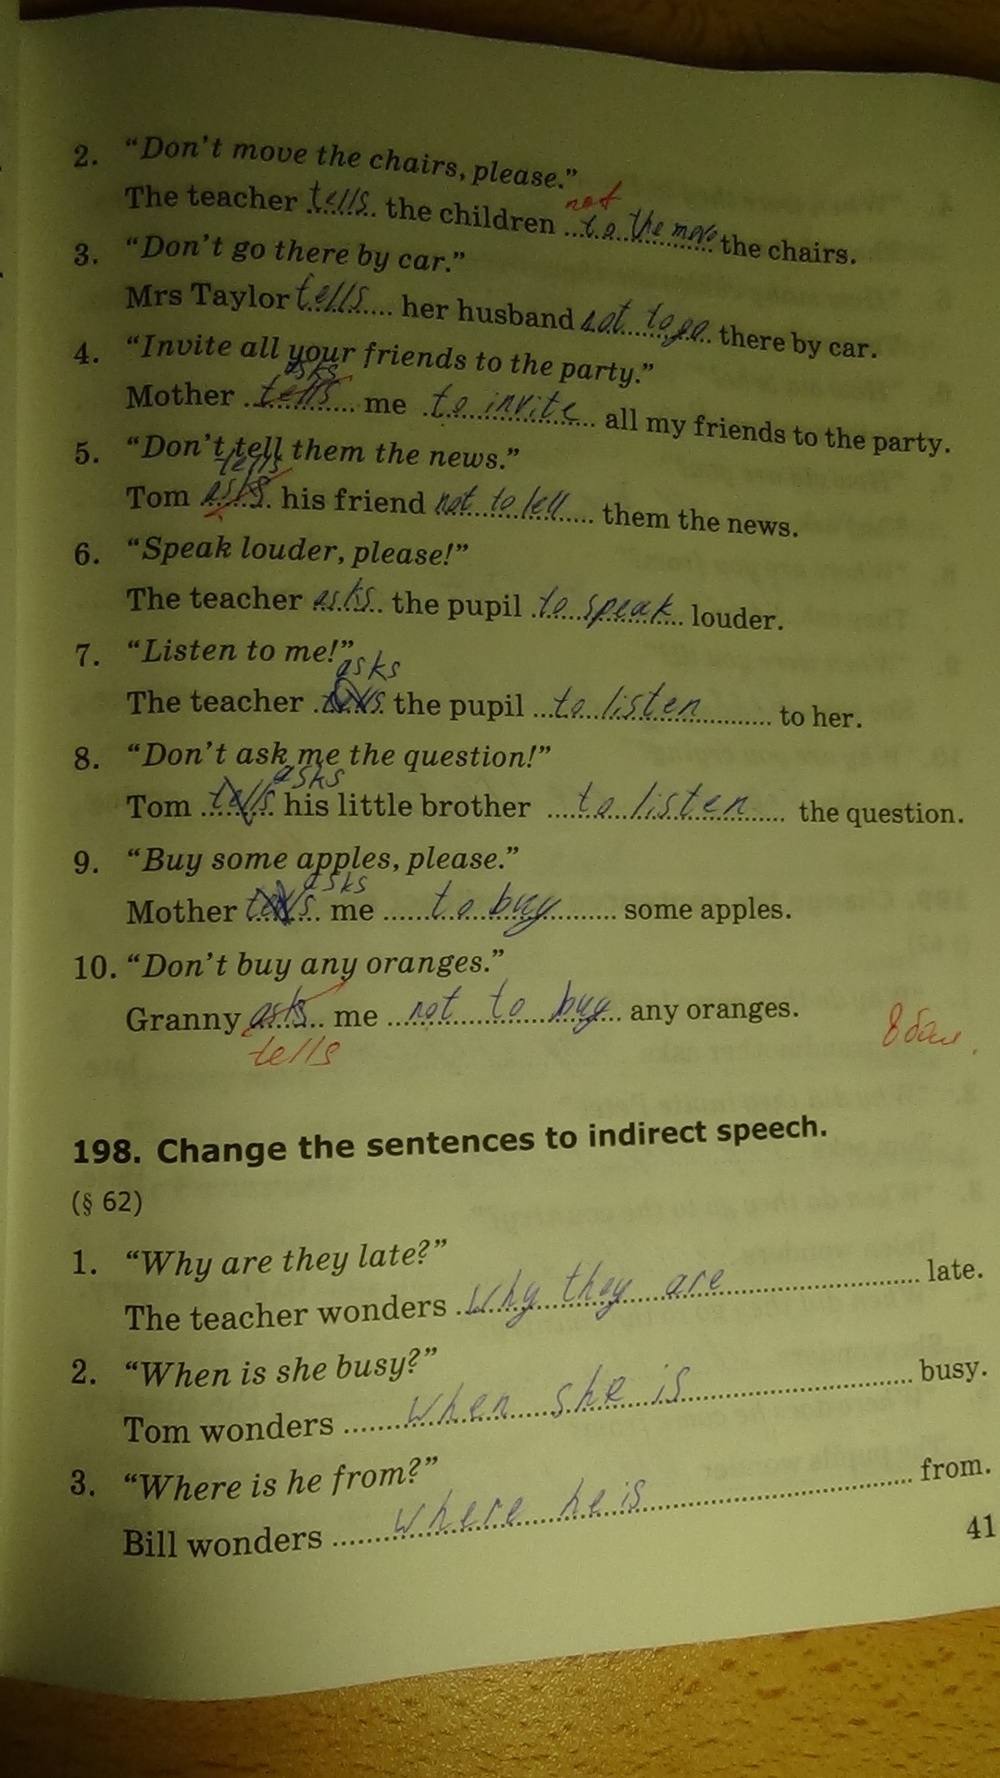 2. “Don’t move the chairs, please.”
not
The teacher tells the children to the move the chairs.
3. “Don’t go there by car.”
Mrs Taylor tells her husband not to go there by car.
4. “Invite all your friends to the party.”
asks
Mother tells me to invite all my friends to the party.
5. “Don’t tell them the news.”
tells
Tom asks his friend not to tell them the news.
6. “Speak louder, please!”
The teacher asks the pupil to speak louder.
7. “Listen to me!”
asks
The teacher tells the pupil to listen to her.
8. “Don’t ask me the question!”
asks
Tom tells his little brother to listen the question.
9. “Buy some apples, please.”
asks
Mother tells me to buy some apples.
10. “Don’t buy any oranges.”
Granny asks me not to buy any oranges.
tells
8 бал.
198. Change the sentences to indirect speech.
(§ 62)
1. “Why are they late?”
The teacher wonders why they are late.
2. “When is she busy?”
Tom wonders when she is busy.
3. “Where is he from?”
Bill wonders where he is from.
41